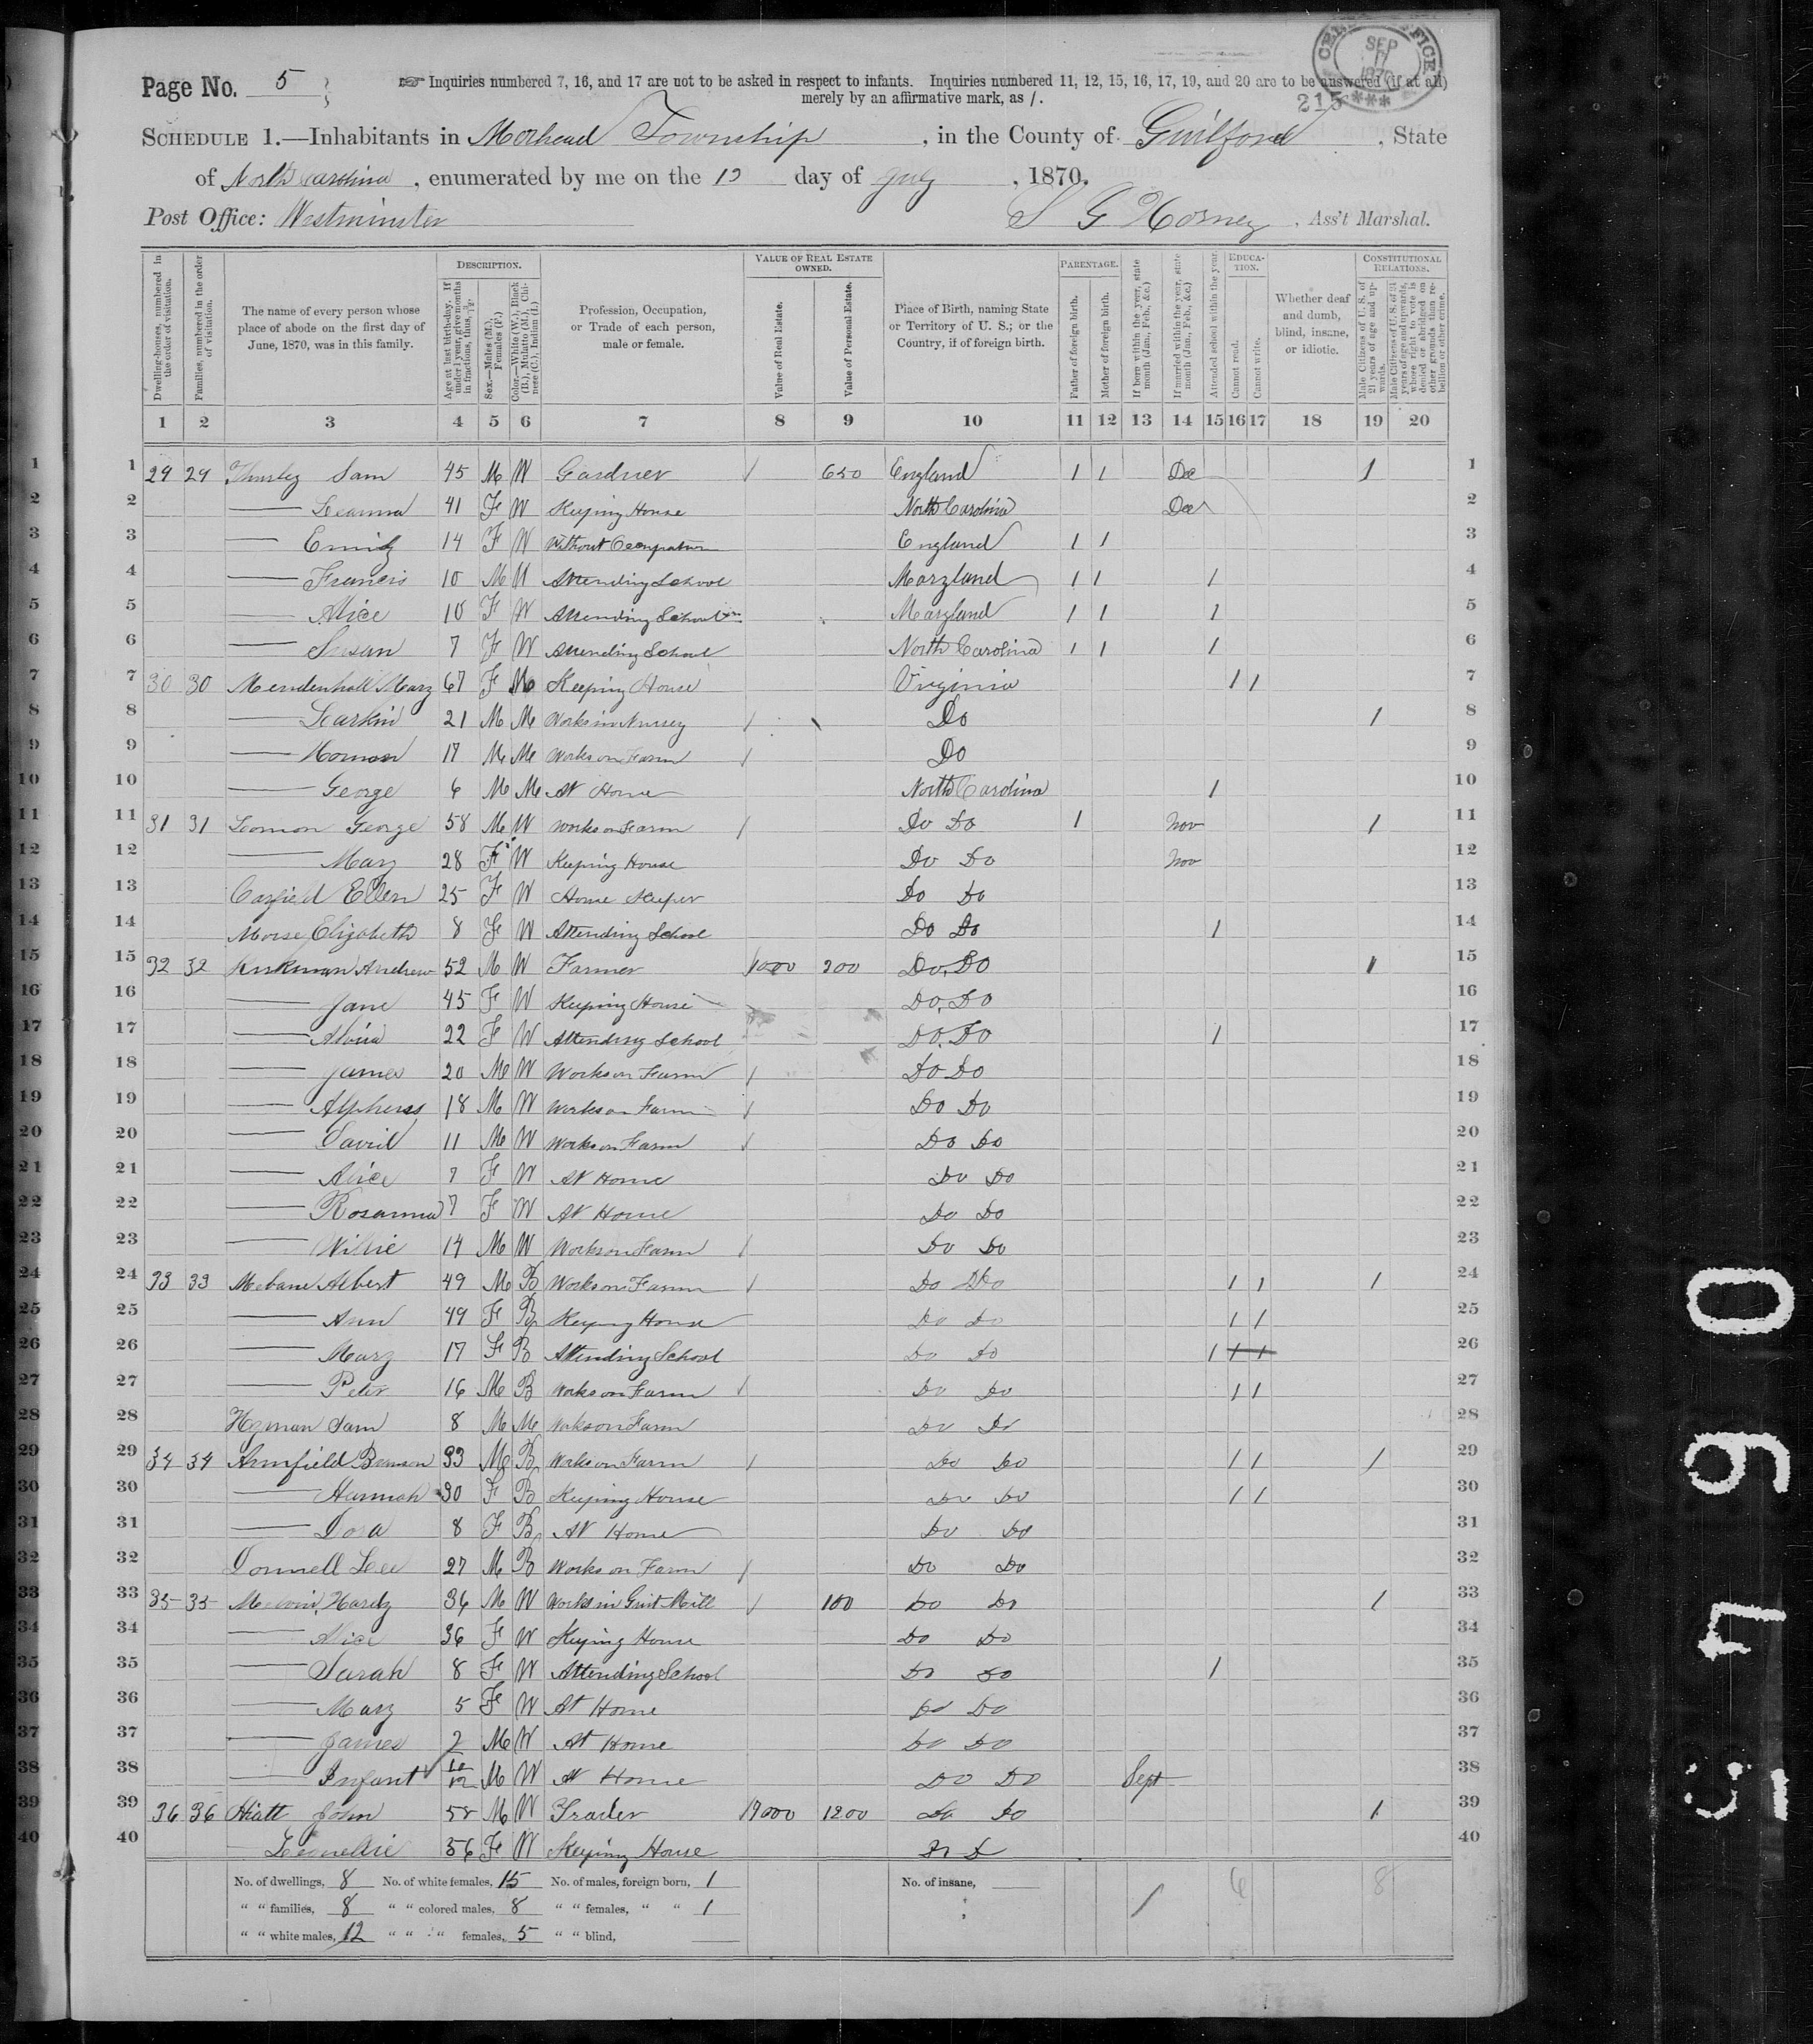 Page No. 5
☞ Inquiries numbered 7, 16, and 17 are not to be asked in respect to infants. Inquiries numbered 11, 12, 15, 16, 17, 19, and 20 are to be answered (if at all)
merely by an affirmative mark, as /.
SEP 1870
215 ***
SCHEDULE 1.—Inhabitants in Morhead Township, in the County of Guilford, State
of North Carolina, enumerated by me on the day of, 1870.
Post Office: Westminster S G Horney, Ass't Marshal.
Dwelling-houses, numbered in the order of visitation.
Families, numbered in the order of visitation.
The name of every person whose place of abode on the first day of June, 1870, was in this family.
DESCRIPTION.
Age at last birth-day. If under 1 year, give months in fractions, thus, 3/12.
Sex.—Males (M.), Females (F.)
Color.—White (W.), Black (B.), Mulatto (M.), Chinese (C.), Indian (I.)
Profession, Occupation, or Trade of each person, male or female.
VALUE OF REAL ESTATE OWNED.
Value of Real Estate.
Value of Personal Estate.
Place of Birth, naming State or Territory of U. S.; or the Country, if of foreign birth.
PARENTAGE.
Father of foreign birth.
Mother of foreign birth.
If born within the year, state month (Jan., Feb., &c.)
If married within the year, state month (Jan., Feb., &c.)
Attended school within the year.
EDUCATION.
Cannot read.
Cannot write.
Whether deaf and dumb, blind, insane, or idiotic.
CONSTITUTIONAL RELATIONS.
Male Citizens of U. S. of 21 years of age and upwards.
Male Citizens of U. S. of 21 years of age and upwards, whose right to vote is denied or abridged on other grounds than rebellion or other crime.
1 2 3 4 5 6 7 8 9 10 11 12 13 14 15 16 17 18 19 20
1 29 29 Sam 45 M W Gardner / 650 England 1 1 Dec 1 1
2 Leanna 41 F W Keeping House North Carolina Dec 2
3 Emily 14 F W Without Occupation England 1 1 3
4 Francis 10 M W Attending School Maryland 1 1 1 4
5 Alice 10 F W Attending School Maryland 1 1 1 5
6 Susan 7 F W Attending School North Carolina 1 1 1 6
7 30 30 Mendenhall Mary 67 F M Keeping House Virginia 1 1 7
8 Larkin 21 M M Works in Nursery / Do 1 8
9 17 M M Works on Farm / Do 9
10 George 6 M M At Home North Carolina 1 10
11 31 31 Leomon George 58 M W Works on Farm / Do Do 1 Nov 1 11
12 Mary 28 F W Keeping House Do Do Nov 12
13 Ellen 25 F W House Keeper Do Do 13
14 Morse Elizabeth 8 F W Attending School Do Do 1 14
15 32 32 Kirkman Andrew 52 M W Farmer 1000 300 Do Do 1 15
16 Jane 45 F W Keeping House Do Do 16
17 Alvira 22 F W Attending School Do Do 1 17
18 James 20 M W Works on Farm / Do Do 18
19 Alpheus 18 M W Works on Farm / Do Do 19
20 David 11 M W Works on Farm / Do Do 20
21 Alice 7 F W At Home Do Do 21
22 Rosanna 7 F W At Home Do Do 22
23 Willie 14 M W Works on Farm / Do Do 23
24 33 33 Mebane Albert 49 M B Works on Farm / Do Do 1 1 1 24
25 Ann 49 F B Keeping House Do Do 1 1 25
26 Mary 17 F B Attending School Do Do 1 1 1 26
27 Peter 16 M B Works on Farm / Do Do 1 1 27
28 Hyman Sam 8 M M Works on Farm Do Do 28
29 34 34 Armfield 33 M B Works on Farm / Do Do 1 1 1 29
30 Hannah 30 F B Keeping House Do Do 1 1 30
31 Dora 8 F B At Home Do Do 31
32 Donnell Lee 27 M B Works on Farm / Do Do 32
33 35 35 Hardy 36 M W Works in Grist Mill / 100 Do Do 1 33
34 Alice 36 F W Keeping House Do Do 34
35 Sarah 8 F W Attending School Do Do 1 35
36 Mary 5 F W At Home Do Do 36
37 James 2 M W At Home Do Do 37
38 Infant 10/12 M W At Home Do Do Sept 38
39 36 36 Hiatt John 58 M W Trader 1200 Do Do 1 39
40 56 F W Keeping House D D 40
No. of dwellings, 8 No. of white females, 15 No. of males, foreign born, 1 No. of insane,
" " families, 8 " " colored males, 8 " " females, " " 1 / 6 8
" " white males, 12 " " " females, 5 " " blind,